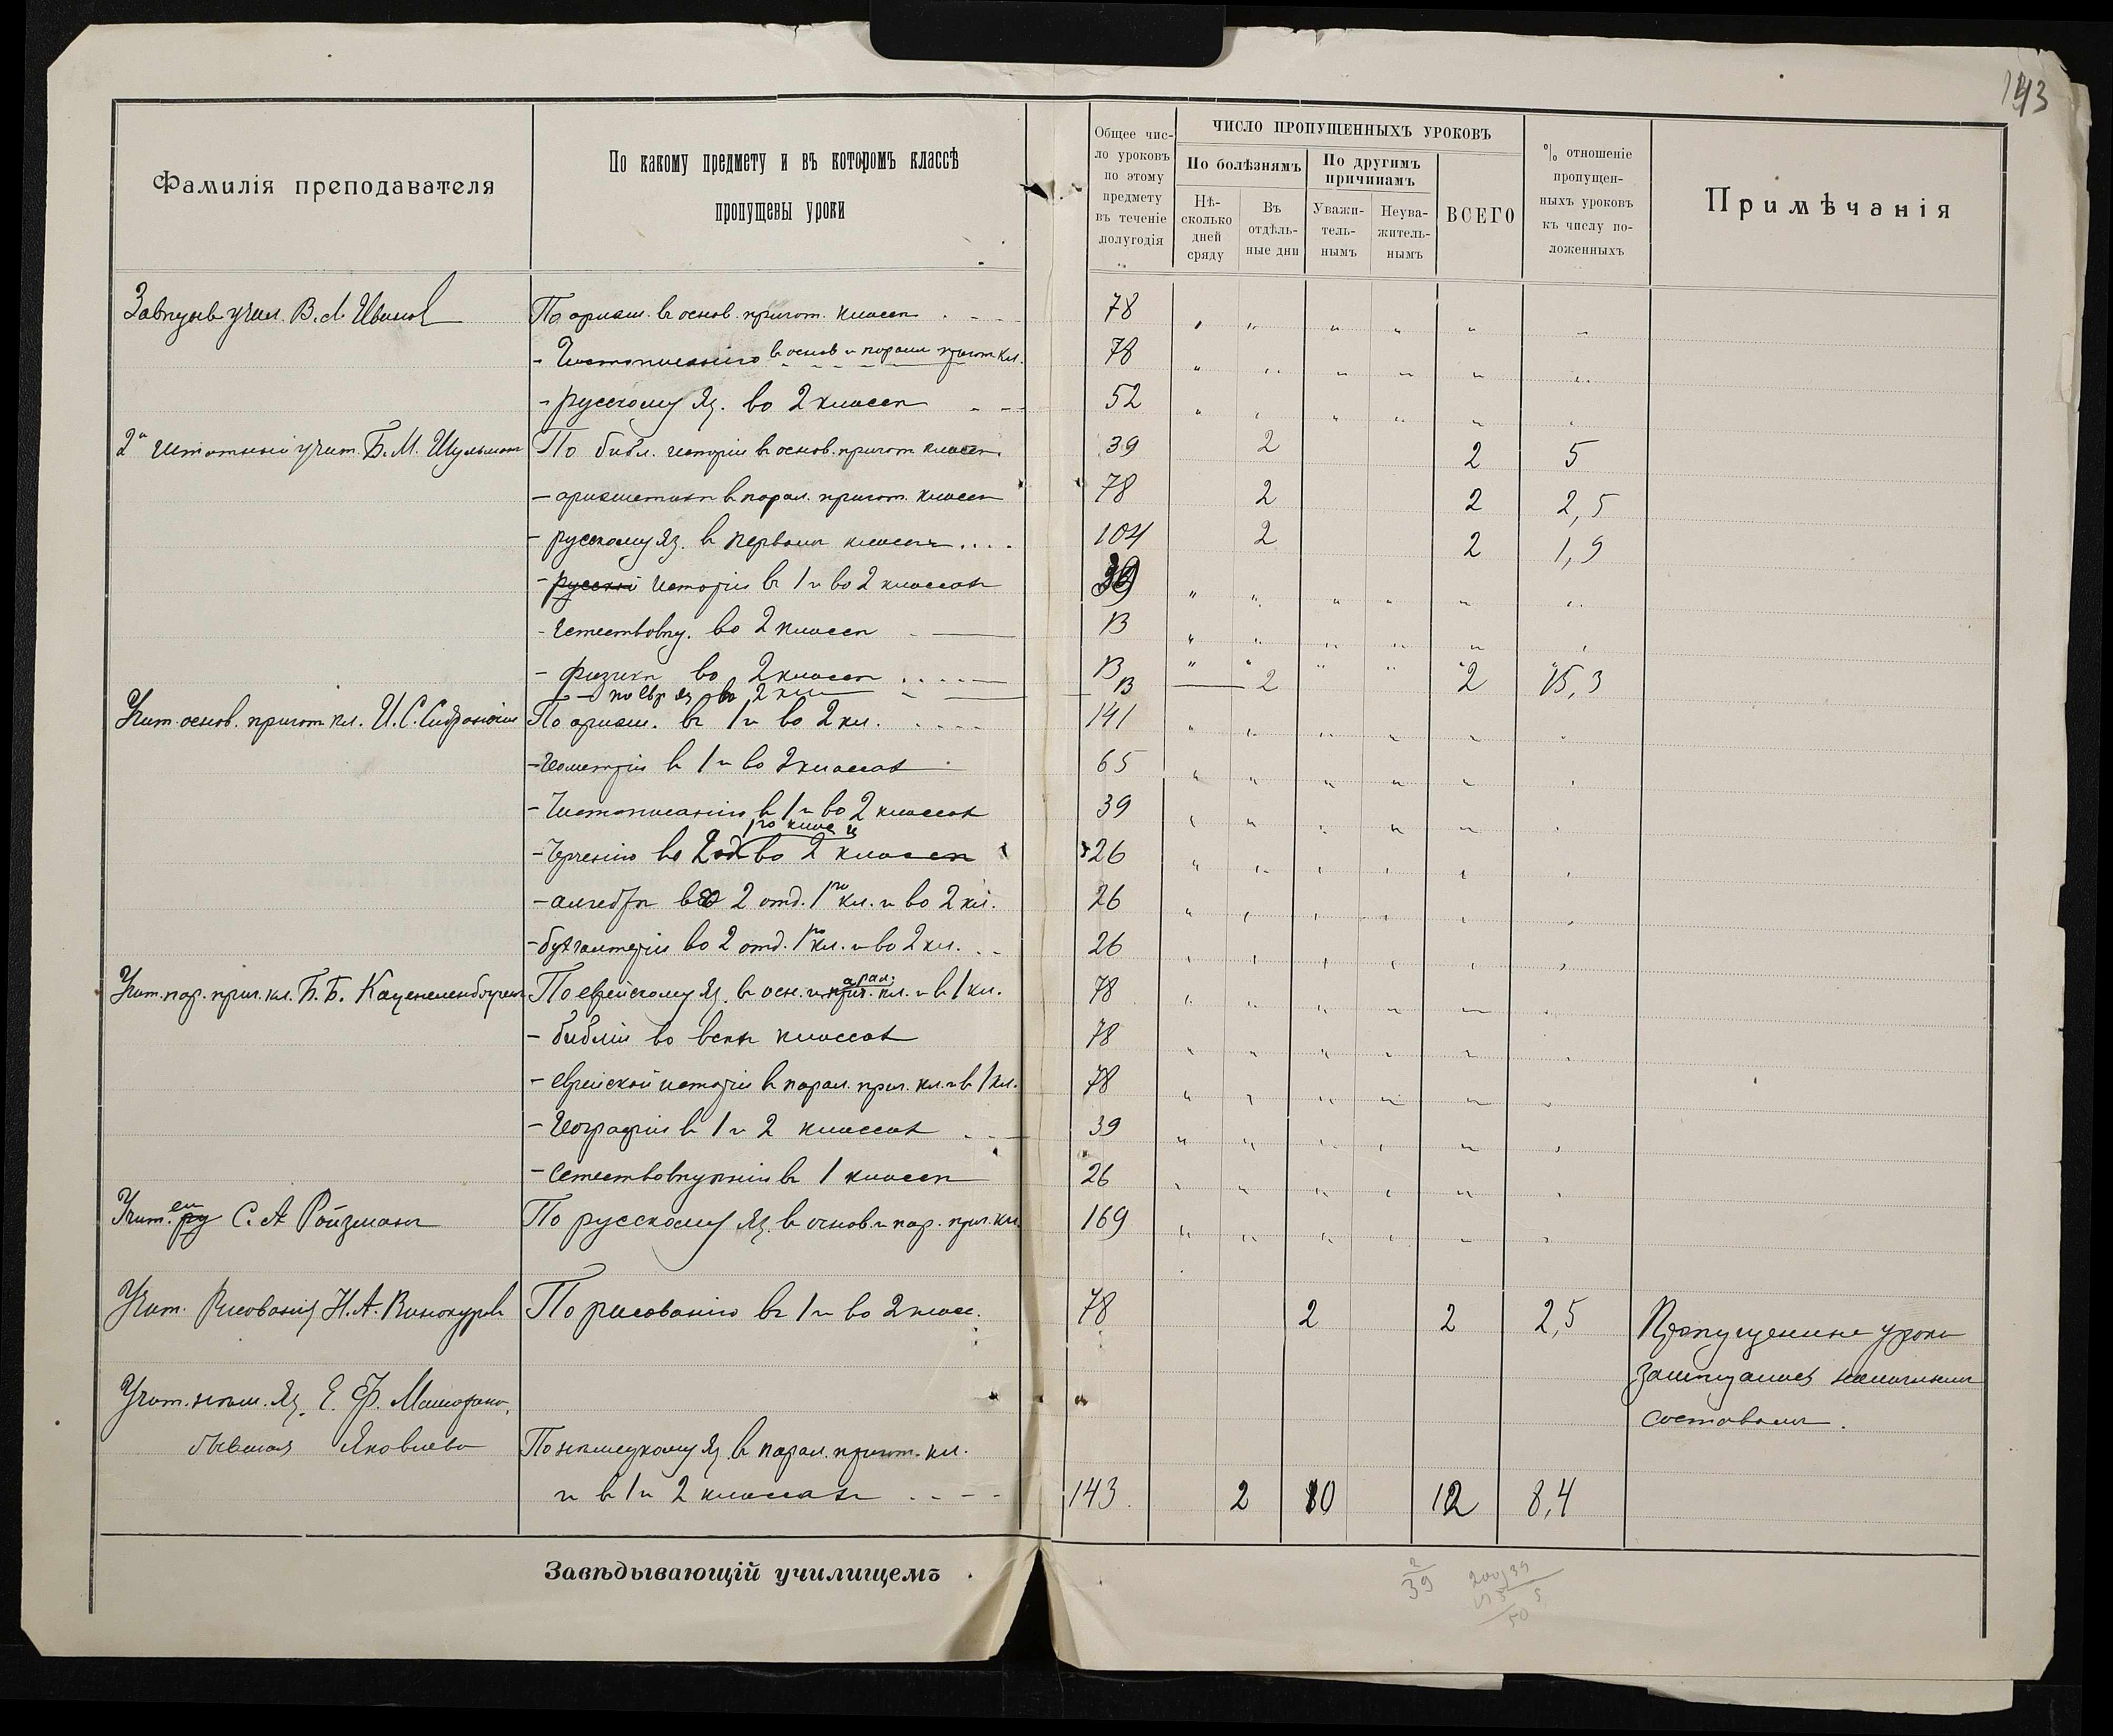 143
Фамилія преподавателя
По какому предмету и въ которомъ классѣ
пропущены уроки
Общее чис-
ло уроковъ
по этому
предмету
въ теченіе
полугодія
ЧИСЛО ПРОПУЩЕННЫХЪ УРОКОВЪ
По болѣзнямъ
По другимъ
причинамъ
Нѣ-
сколько
дней
сряду
Въ
отдѣль-
ные дни
Уважи-
тель-
нымъ
Неува-
житель-
нымъ
ВСЕГО
% отношеніе
пропущен-
ныхъ уроковъ
къ числу по-
ложенныхъ
Примѣчанія
Завѣдыв. учил. В. А. Ивановъ По ариѳм. въ основ. пригот. классѣ 78 " " " " " "
- Чистописанію въ основ и парал пригот кл. 78 " " " " " "
- русскому яз. во 2 классѣ 52 " " " " " "
2й Штатный учит. Б. М. Шульманъ По библ. исторіи въ основ. пригот классѣ. 39 2 2 5
- ариѳметикѣ въ парал. пригот. классѣ 78 2 2 2,5
- русскому яз. въ первомъ классѣ.... 104 2 2 1,9
- русской исторіи въ 1 и во 2 классахъ 39 " " " " " "
- Естествовѣд. во 2 классѣ 13 " " " " " "
- физикѣ во 2 классѣ 13 " " " " " "
- по евр яз во 2 кл 13 2 2 15,3
Учит. основ. пригот кл. И. С. По ариѳм. въ 1 и во 2 кл. 141 " " " " " "
- Геометріи въ 1 и во 2 классахъ 65 " " " " " "
- Чистописанію въ 1 и во 2 классахъ 39 " " " " " "
1го класс и
- Черченію во 2 од во 2 классѣ 26 " " " " " "
- алгебрѣ во 2 отд. 1го кл. и во 2 кл. 26 " " " " " "
- бухгалтеріи во 2 отд. 1го кл. и во 2 кл. 26 " " " " " "
арал.
Учит. пар. приг. кл. Б. Б. Каценеленбогенъ По еврейскому яз. въ осн. и приг. кл. и въ 1 кл. 78 " " " " " "
- библіи во всѣхъ классахъ 78 " " " " " "
- еврейской исторіи въ парал. приг. кл. и въ 1 кл. 78 " " " " " "
- Географіи въ 1 и 2 классахъ 39 " " " " " "
- Естествовѣдѣнію въ 1 классѣ 26 " " " " " "
Учит. С. А Ройзманъ По русскому яз. въ основ. и пар. приг. кл. 169 " " " " " "
Учит. Рисованія Н. А. Винокуровъ По рисованію въ 1 и во 2 класс. 78 2 2 2,5 Пропущенные уроки
замѣщались наличнымъ
составомъ.
Учит. нѣм. яз. Е. Ф.
бывшая Яковлева По нѣмецкому яз. въ парал. пригот. кл.
и въ 1 и 2 классахъ 143. 2 10 12 8,4
Завѣдывающій училищемъ
2
39
200 39
195 5
50